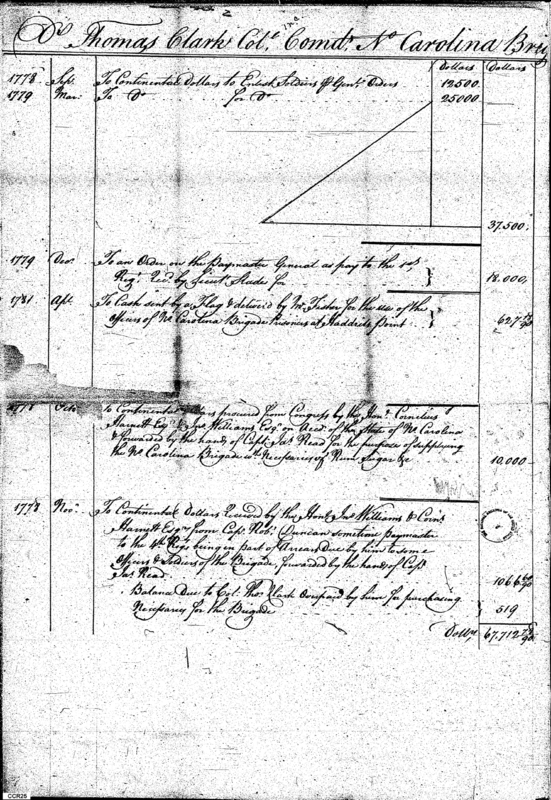 Dr Thomas Clark Colo. Comdt. No Carolina Brig
Dollars Dollars
1778 Sept. To Continental Dollars to Enlist Soldiers Genl. Orders 12500
1779 Mar: To Do for Do 25000
37.500
1779 Decr. To an Order on the Paymaster General as pay to the 1st
Regt. Recd. by Lieut Slade for 18.000
1781 Apl. To Cash sent by a Flag & deliver'd by Mr. for the use of the
Officers of No Carolina Brigade Prisoners at Haddrels point 627
1778 Octr. To Continental procured from Congress by the Honl. Cornelius
Harnett Esqr. & Jno Williams Esqr. on Acct. of the State of No Carolina
& forwarded by the hands of Capt Jas. Read for the purpose of supplying
the No Carolina Brigade with Necessaries of Rum Sugar &c 10,000
1778 Novr. To Continental Dollars Received by the Honl. Jno Williams & Corns.
Harnett Esqrs. from Capt Robt. Duncan sometime paymaster
to the 4th Regt. being in part of Arrears Due by him to some
Officers & Soldiers of the Brigade, forwarded by the hands of Capt
Jas. Read 1066
Balance Due to Col. Thos. Clark by him for purchasing
Necessaries for the Brigade 519
Dollrs. 67,712
CCR25